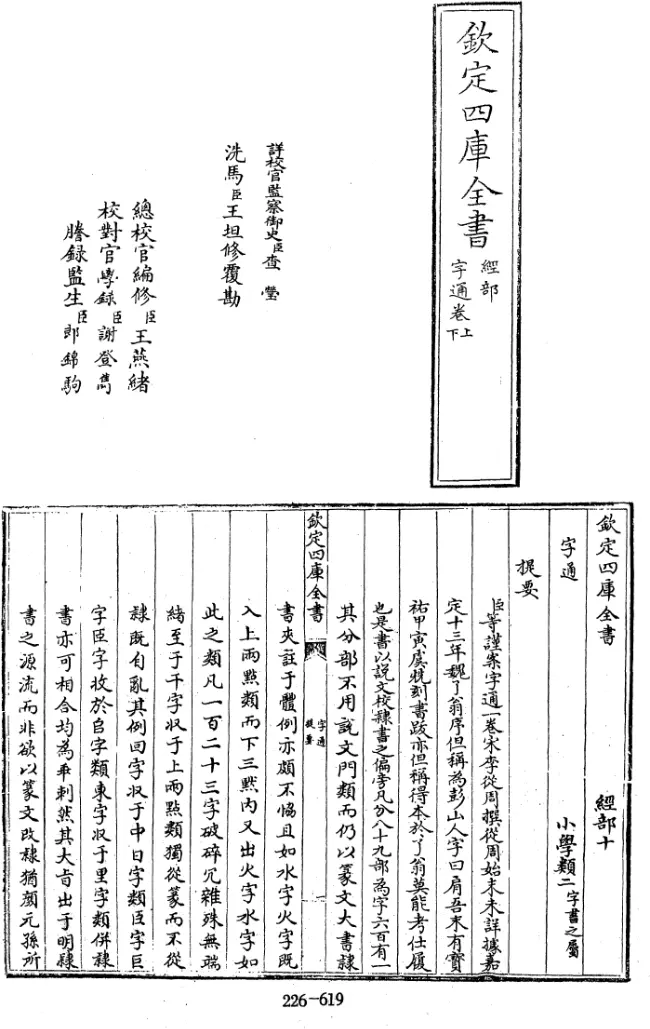 欽定四庫全書
經部
字通卷上下
詳校官監察御史臣查瑩
洗馬臣王坦修覆勘
總校官編修臣王燕緒
校對官學録臣謝登雋
謄録監生臣郎錦駒
欽定四庫全書 經部十
字通 小學類二字書之屬
提要
臣等謹案字通一卷宋李從周撰從周始末未詳據嘉
定十三年魏了翁序但稱為彭山人字曰肩吾末有寳
祐甲寅虞刻書跋亦但稱得本於了翁莫能考仕履
也是書以説文校隷書之偏旁凡分八十九部為字六百有一
其分部不用説文門類而仍以篆文大書隷
欽定四庫全書 字通 提要 一
書夾註于體例亦頗不愶且如水字火字既
入上兩㸃類而下三㸃内又出火字水字如
此之類凡一百二十三字破碎冗雜殊無端
緒至于千字收于上兩㸃類獨從篆而不從
隷既自亂其例回字收于中日字類臣字巨
字臣字收於字類東字收于里字類併隷
書亦可相合均為乖剌然其大旨出于明隷
書之源流而非欲以篆文改隷猶顔元孫所
226-619